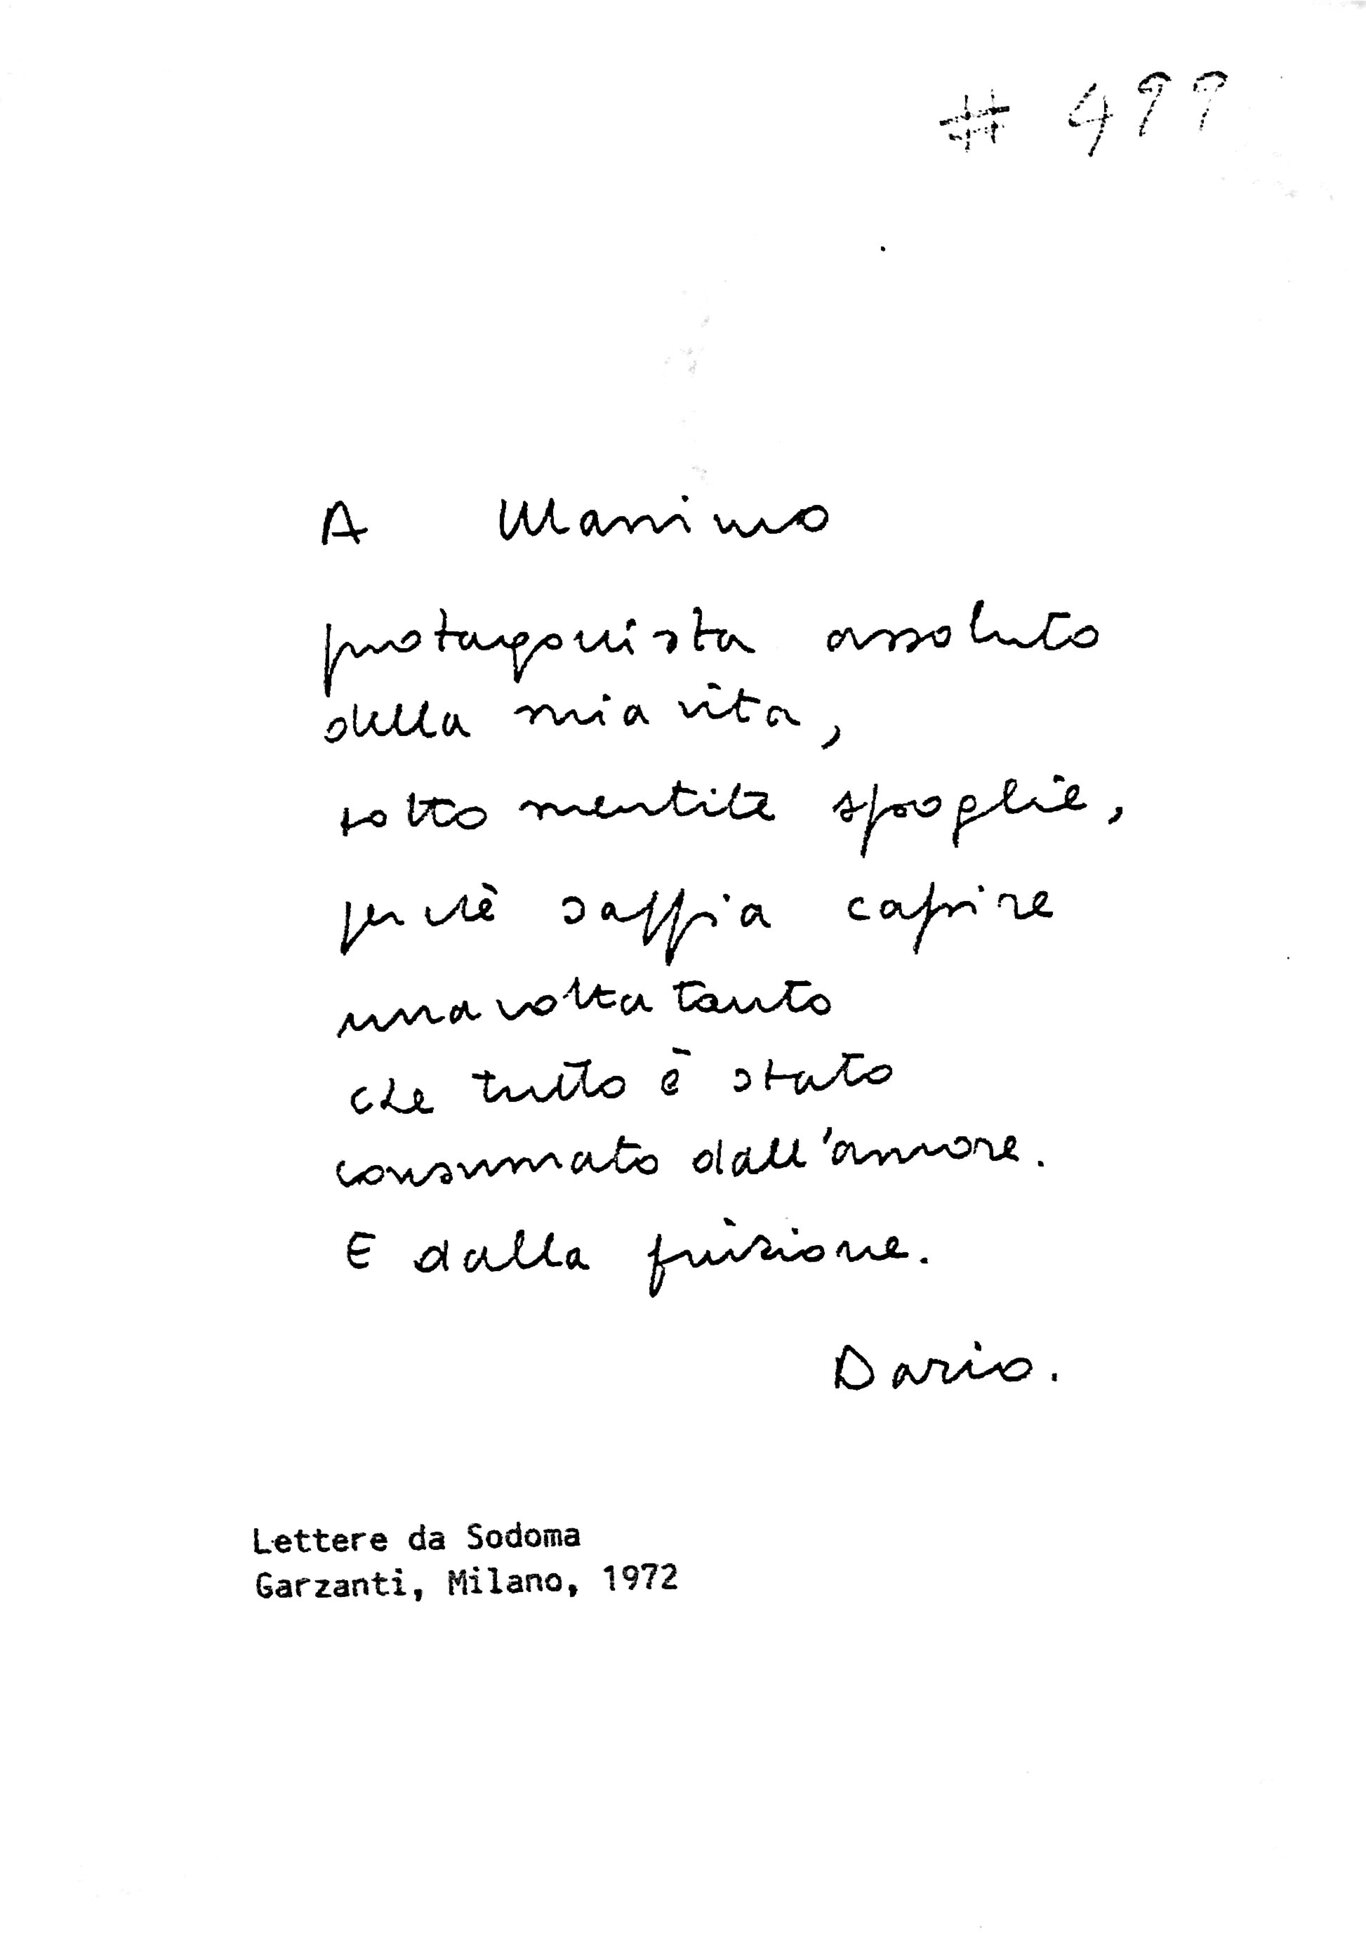 # 499
A Massimo
protagonista assoluto
della mia vita,
sotto mentite spoglie,
perchè sappia capire
una volta tanto
che tutto è stato
consumato dall'amore.
E dalla finzione.
Dario.
Lettere da Sodoma
Garzanti, Milano, 1972